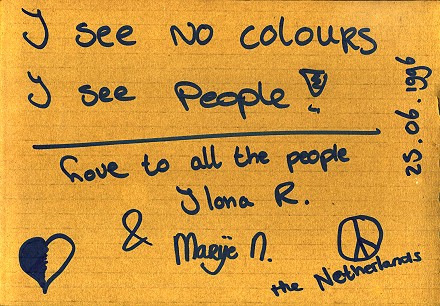 I see no colours
I see People!
Love to all the people
Ilona R.
& Marije N.
the Netherlands
25.06.1996